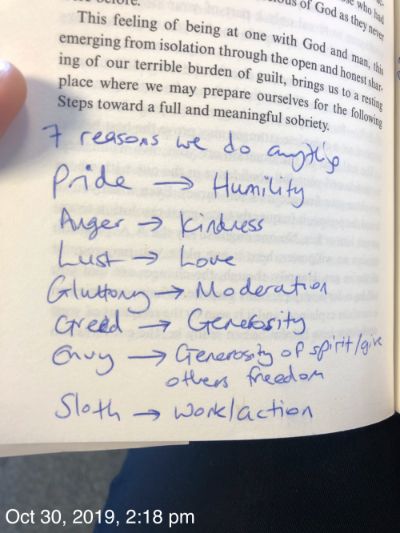 of God as they never
This feeling of being at one with God and man, this
emerging from isolation through the open and honest shar-
ing of our terrible burden of guilt, brings us to a resting
place where we may prepare ourselves for the following
Steps toward a full and meaningful sobriety.
7 reasons we do anything
Pride → Humility
Anger → Kindness
Lust → Love
Gluttony → Moderation
Greed → Generosity
Envy → Generosity of spirit/give
others freedom
Sloth → Work/action
Oct 30, 2019, 2:18 pm